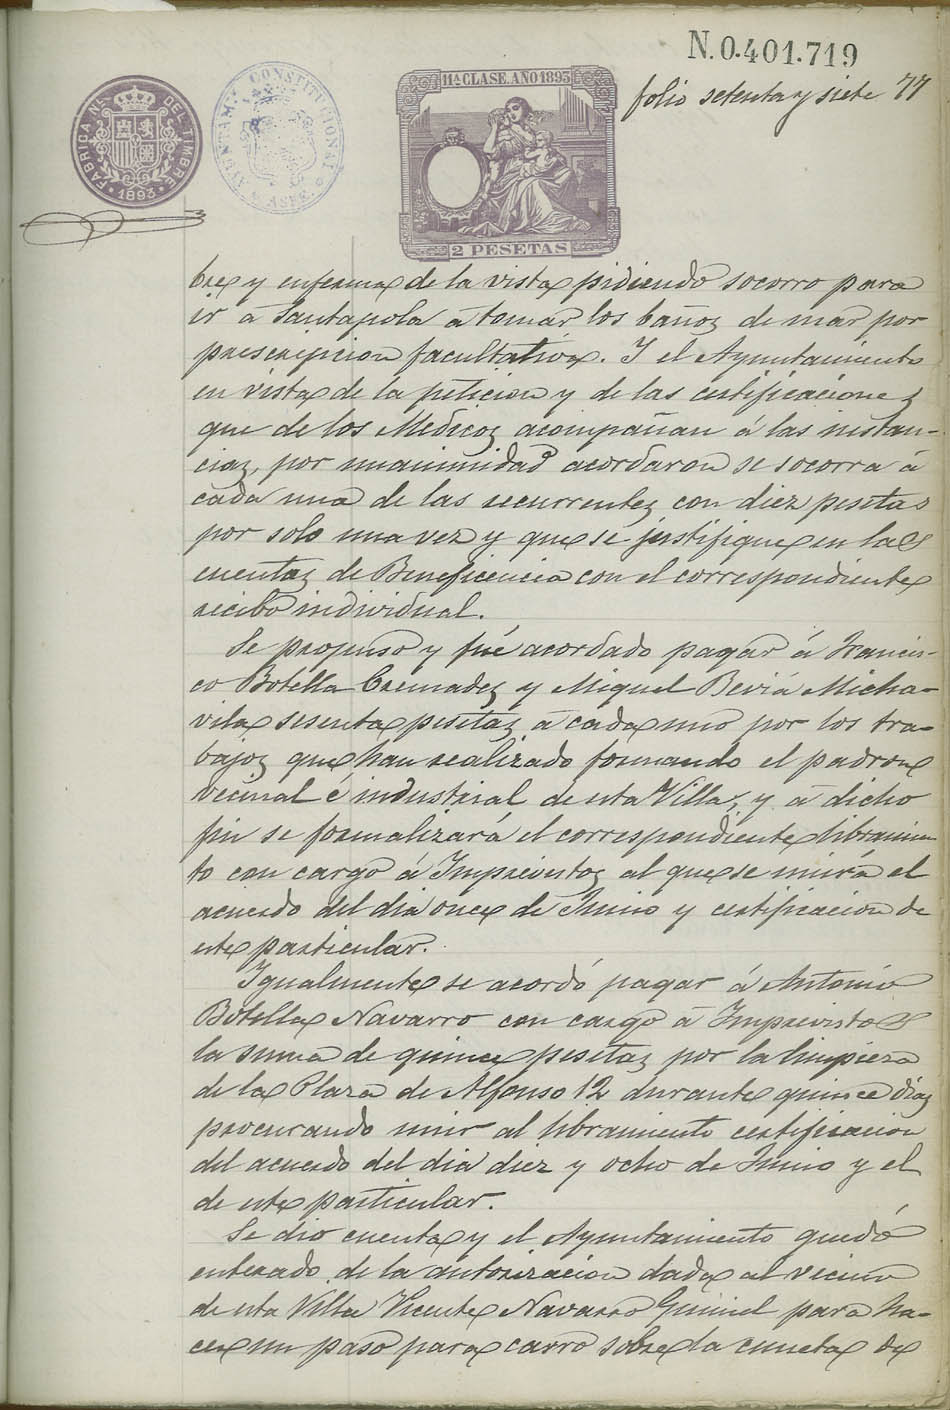 N.0.401.719
11ª CLASE. AÑO 1893
folio setenta y siete 77
FABRICA NAL. DEL TIMBRE
1893
AYUNTAM. CONSTITUCIONAL
ASPE.
2 PESETAS
bre y enferma de la vista pidiendo socorro para
ir á Santapola á tomar los baños de mar por
prescripcion facultativa. Y el Ayuntamiento
en vista de la peticion y de las certificaciones
que de los Médicos acompañan á las instan-
cias, por unanimidad acordaron se socorra á
cada una de las recurrentes con diez pesetas
por solo una vez y que se justifique en las
cuentas de Beneficencia con el correspondiente
recibo individual.
Se propuso y fué acordado pagar á Francis-
co Botella Cremades y Miguel Beviá Micha-
vila sesenta pesetas á cada uno por los tra-
bajos que han realizado formando el padron
vecinal é industrial de esta Villa, y á dicho
fin se formalizará el correspondiente libramien
to con cargo á Imprevistos al que se unirá el
acuerdo del dia once de Junio y certificacion de
este particular.
Igualmente se acordó pagar á Antonio
Botella Navarro con cargo á Imprevistos
la suma de quince pesetas por la limpieza
de la Plaza de Alfonso 12 durante quince dias
procurando unir al libramiento certificacion
del acuerdo del dia diez y ocho de Junio y el
de este particular.
Se dio cuenta y el Ayuntamiento quedó
enterado de la autorizacion dada al vecino
de esta Villa Vicente Navarro Gumiel para ha-
cer un paso para carro sobre la cuneta de